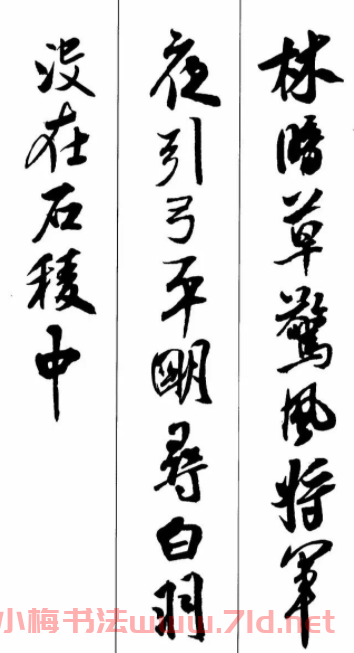 林暗草驚風将軍
夜引弓平明尋白羽
没在石稜中
小梅书法www.7ld.net